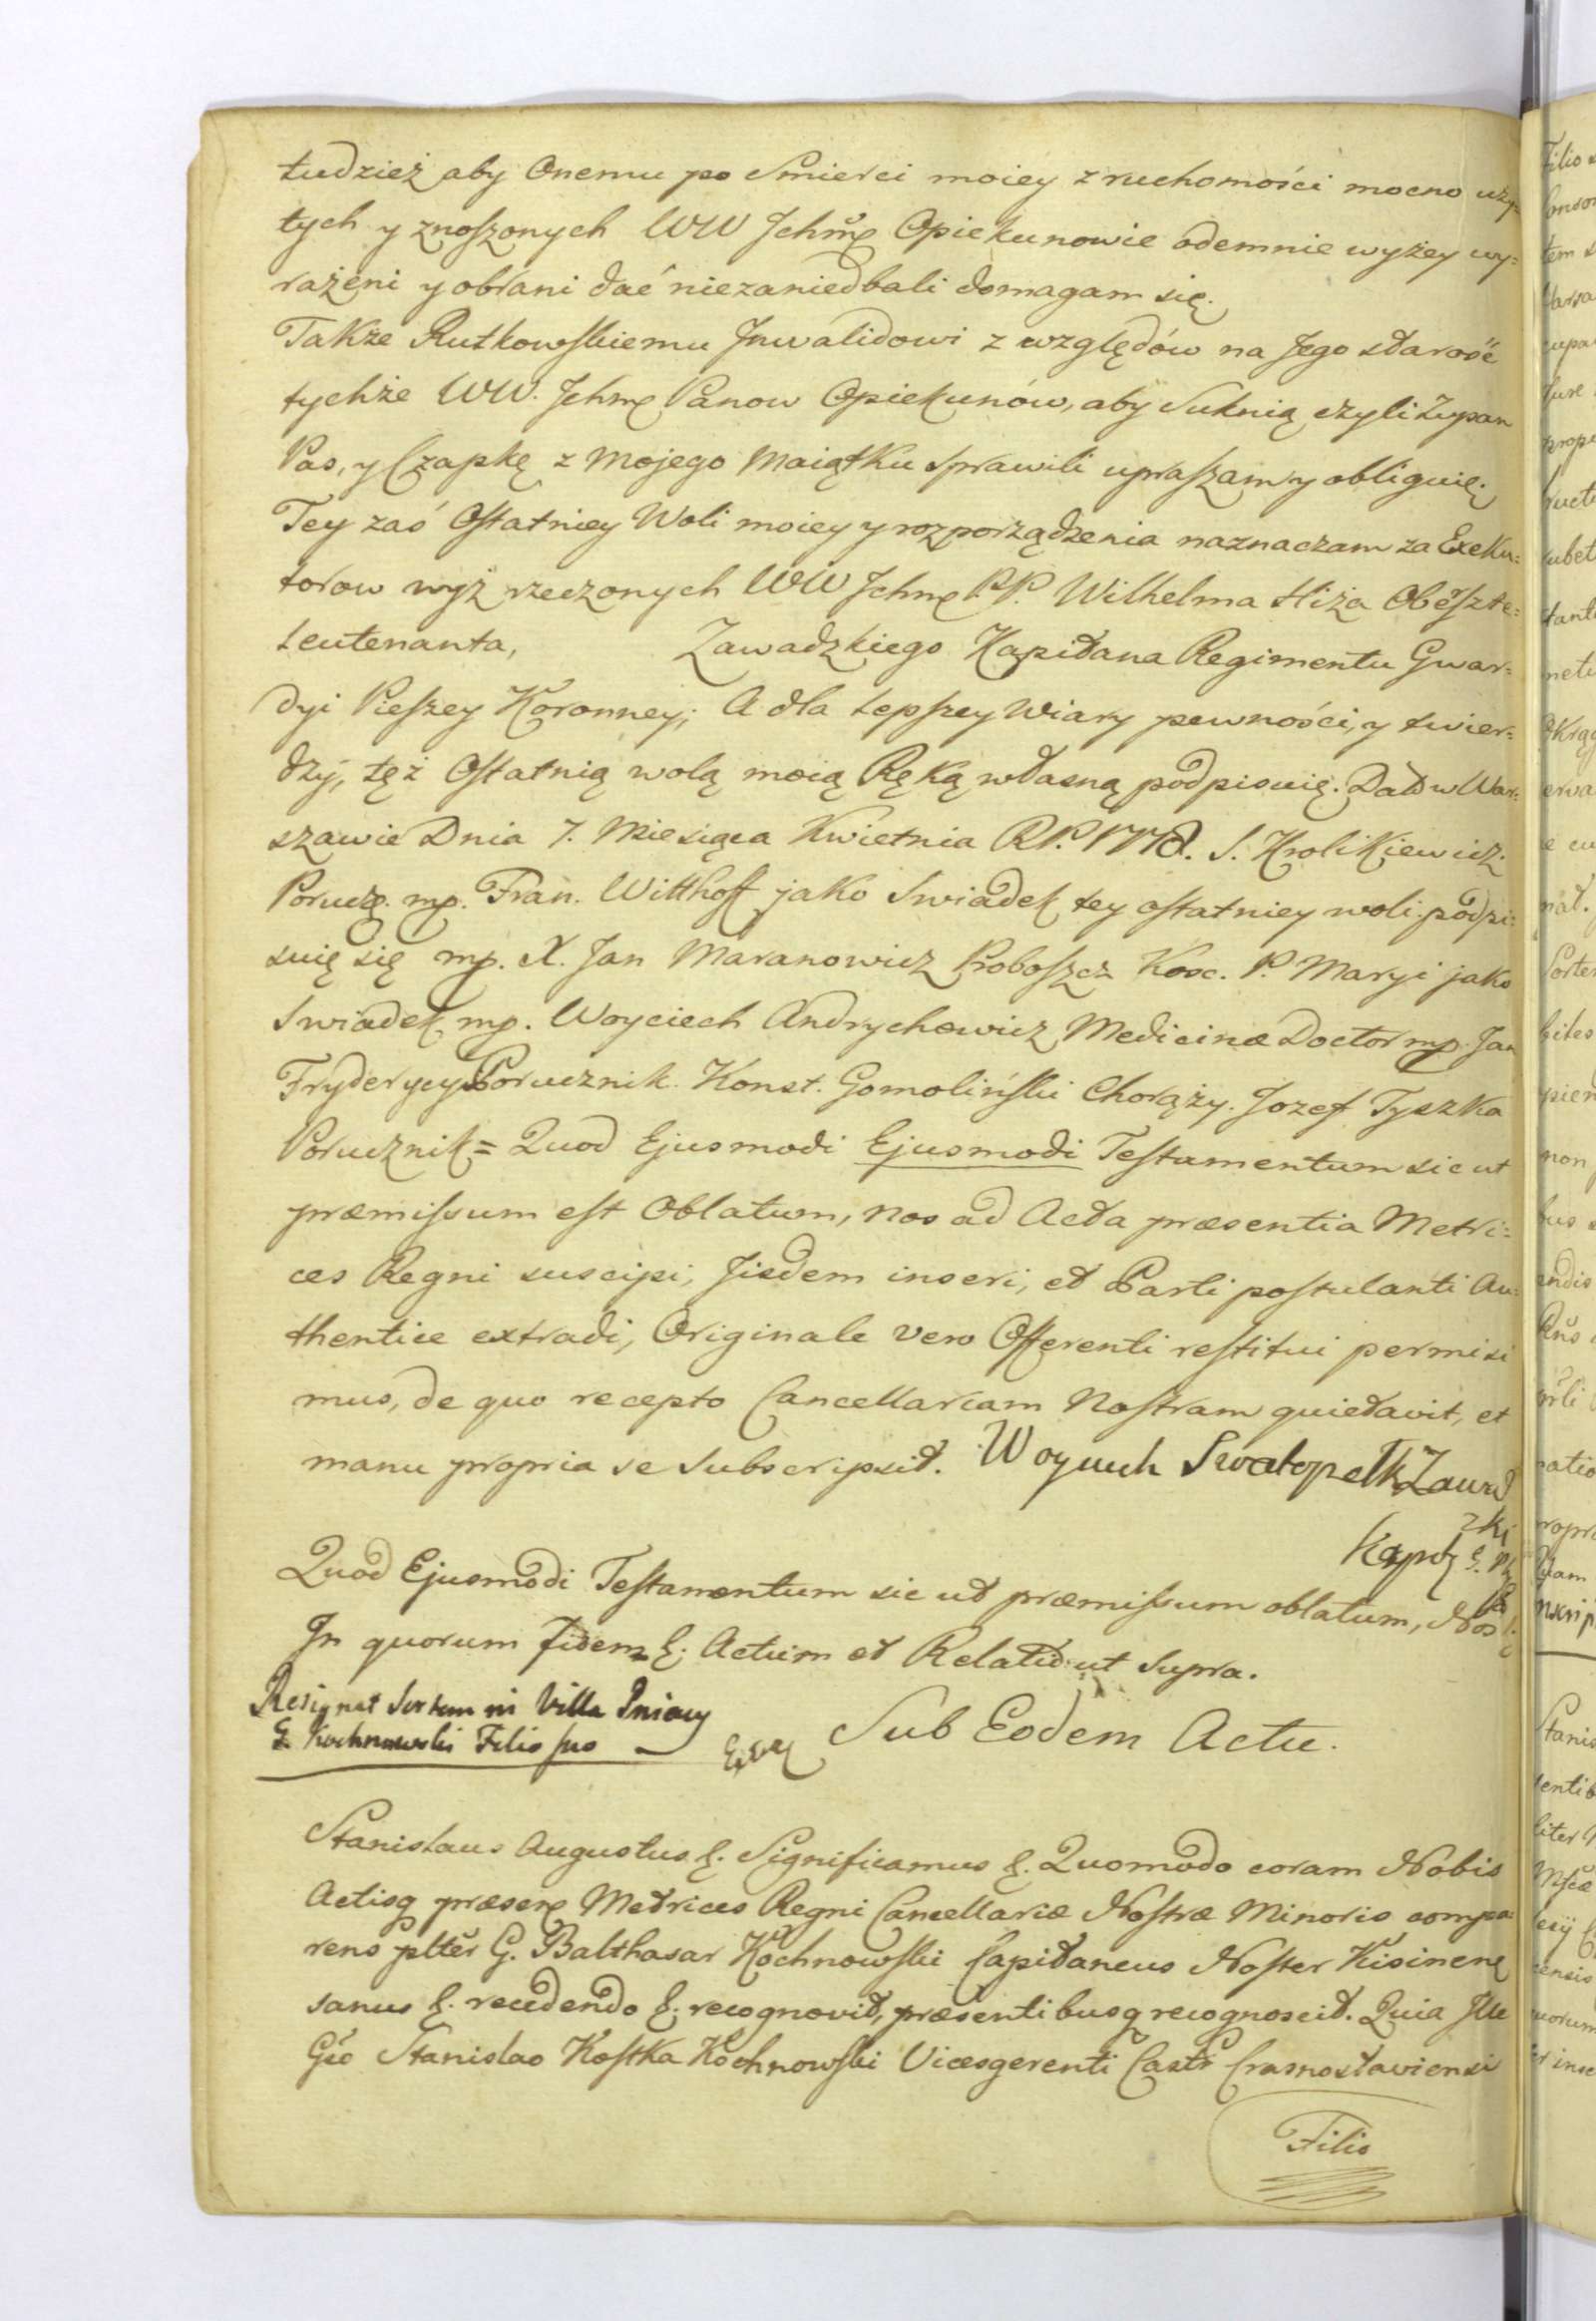 tudzież aby Onemu po Smierci moiey z ruchomości mocno uży-
tych y znoszonych WW Jchm̃ Opiekunowie odemnie wyżey wy=
rażeni y obrani dać niezaniedbali domagam się.
Także Rutkowskiemu Inwalidowi z względów na Jego starość
tychże WW. Jchm Panow Opiekunów, aby Suknią czyli Zupan
Pas, y Czapkę z mojego Maiątku sprawili upraszam y obliguię.
Tey zaś Ostatniey Woli moiey y rozporządzenia naznaczam za Exeku=
torow wyż rzeczonych WW Jchm PP. Wilhelma Hiża Obeszte=
Leutenanta, Zawadzkiego Kapitana Regimentu Gwar=
dyi Pieszey Koronney; A dla lepszey Wiary pewności, y twier=
dzy, tęż Ostatnią wolą moią Ręką własną podpisuię. Dat w War=
szawie Dnia 7. Miesiąca Kwietnia RP. 1778. S. Krolikiewicz
Porucz. mp. Fran. Witthoff jako Swiadek tey ostatniey woli podpi=
suię się mp. X. Jan Maranowicz Proboszcz Kosc. P. Maryi jako
Swiadek mp. Woyciech Andrychowicz Medicinæ Doctor mp. Jan
Fryderycy Porucznik. Konst. Gomoliński Chorąży. Jozef Tyszka
Porucznik = Quod Ejusmodi Ejusmodi Testamentum sic ut
præmissum est Oblatum, Nos ad Acta præsentia Metri=
ces Regni suscipi, Jisdem inseri, et Parti postulanti Au=
thentice extradi, Originale vero Offerenti restitui permisi
mus, de quo recepto Cancellariam Nostram quietavit, et
manu propria se subscripsit. Woyciech Swatopełk Zawad
zki
Quod Ejusmodi Testamentum sic ut præmissum oblatum, Nos
In quorum fidem &. Actum et Relatio ut supra.
Resignat Sortem in Villa Pniowy
G. Kochnowski Filio suo
Sub Eodem Actu.
Stanislaus Augustus &. Significamus &. Quomodo coram Nobis
Actisq præsen Metrices Regni Cancellariæ Nostræ Minoris compa=
rens pltĕr G. Balthasar Kochnowski Capitaneus Noster Kisinen
sanus &. recedendo &. recognovit, præsentibusq recognoscit. Quia Jlle
Gso Stanislao Kostka Kochnowski Vicesgerenti Castr Crasnostaviensi
Filio